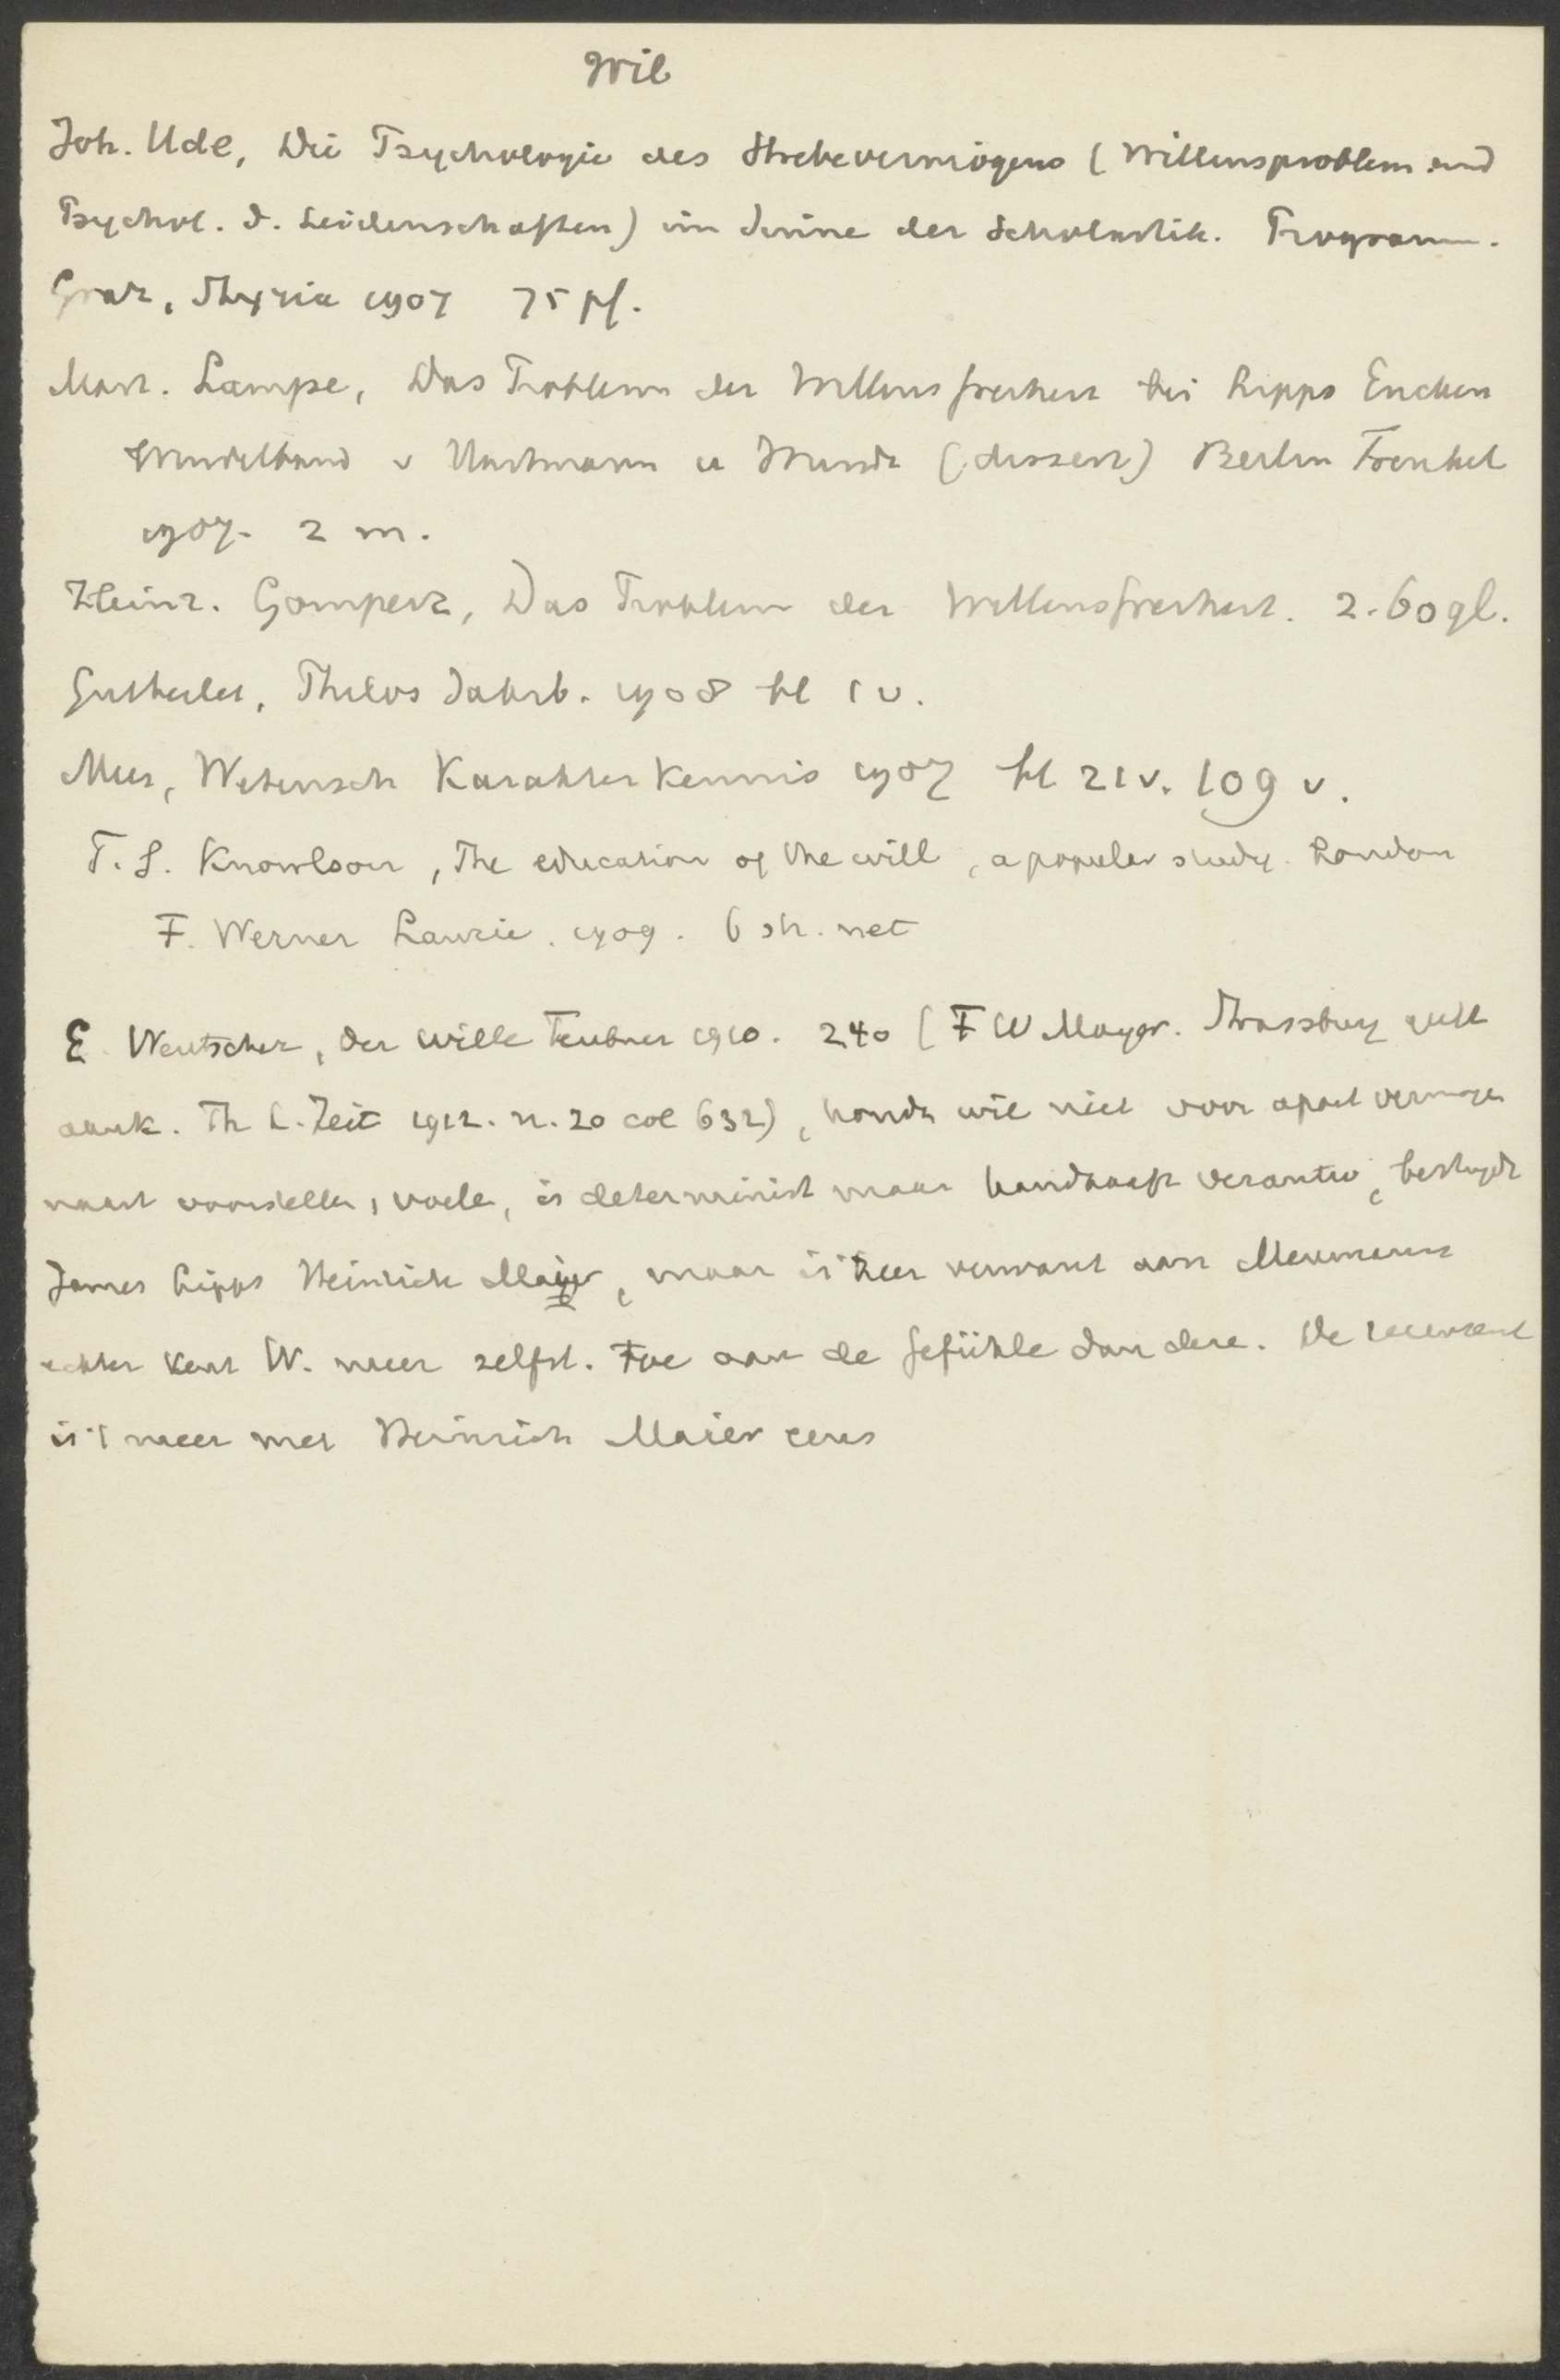 Wil
Joh. Ude, Die Psychologie des Strebevermögens (Willensproblem und
Psychol. d. Leidenschaften) im Sinne der Scholastik. Programm.
Graz, Styria 1907 75 pf.
Mart. Lampe, Das Problem der Willensfreiheit bei Lipps Eucken
Windelband v Hartmann u Wundt (dissert) Berlin Frenkel
1907. 2 m.
Heinr. Gomperz, Das Problem der Willensfreiheit. 2.60 gl.
Gutberlet, Philos Jahrb. 1908 bl 1 v.
Mees, Wetensch Karakterkennis 1907 bl 21 v. 109 v.
T. S. Knowlson, The education of the will, a popular study. London
T. Werner Laurie. 1909. 6 sh. net
E. Wentscher, der Wille Teubner 1910. 240 (F W Mayer. Strassburg
aank. Th L. Zeit 1912. n. 20 col 632), houdt wil niet voor apart vermogen
naast voorstellen, voele, is determinist maar handhaaft verantw, bestrijdt
James Lipps Heinrich Maier, maar is zeer verwant aan Meumann
echter kent W. meer zelfst. toe aan de Gefühle dan deze. De recensent
is 't meer met Heinrich Maier eens